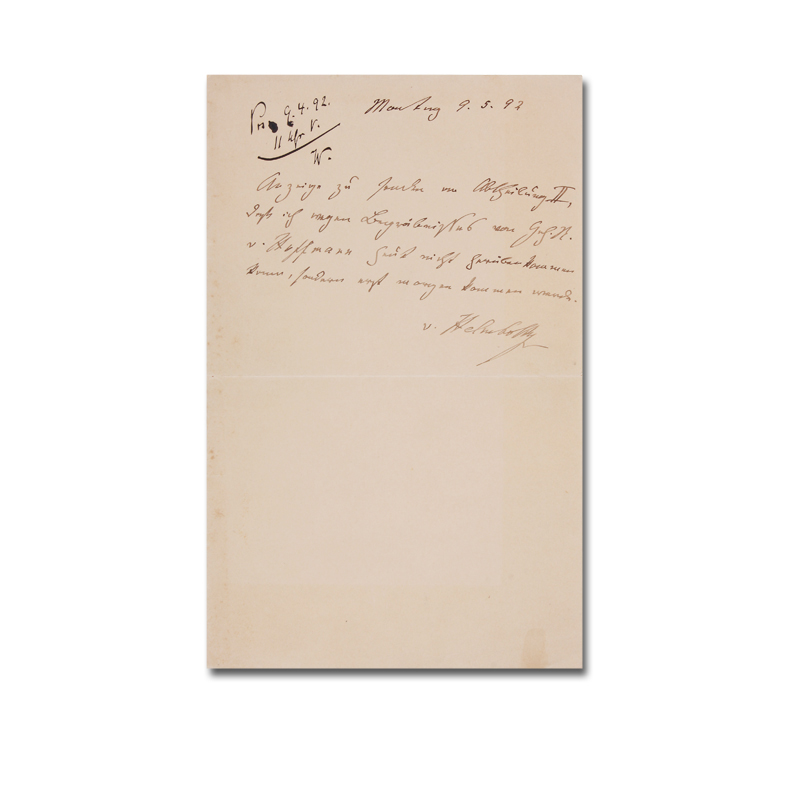 Prs. 9.4.92.
11 Uhr V.
W.
Montag 9. 5. 92
Anzeige zu senden an Abtheilung II,
daß ich wegen Begräbnisses von Geh. R.
v. Hoffmann heut nicht herüberkommen
kann, sondern erst morgen kommen werde.
v. Helmholtz